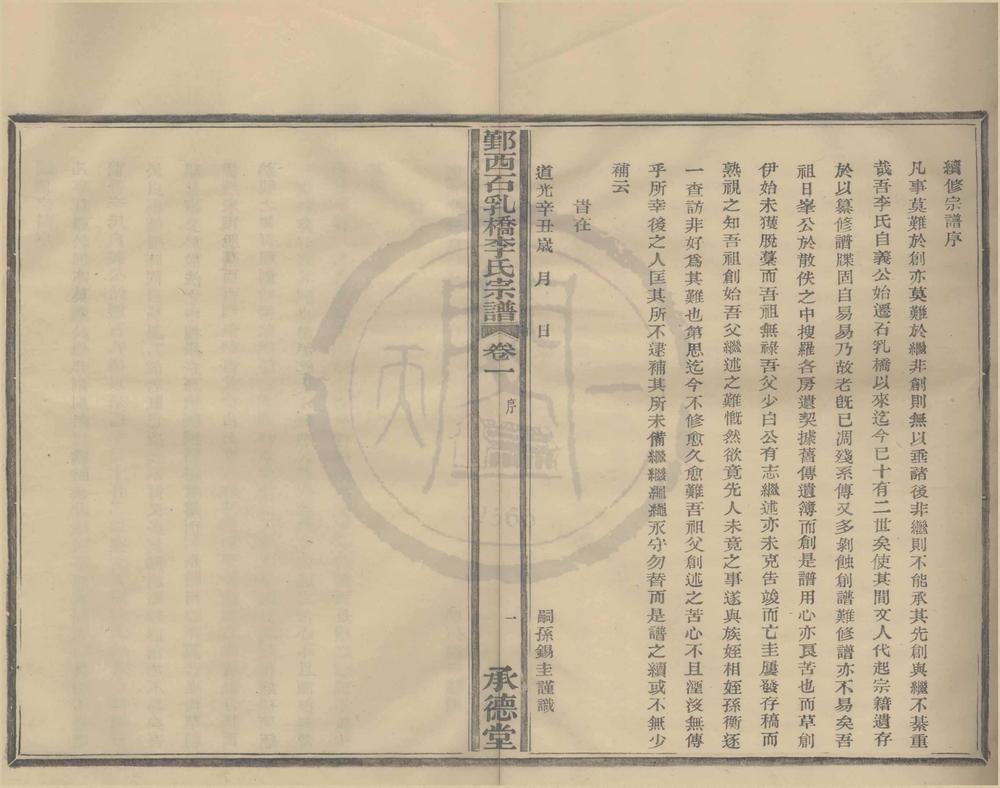 續修宗譜序
凡事莫難於創亦莫難於繼非創則無以垂諸後非繼則不能承其先創與繼不綦重
哉吾李氏自義公始遷石乳橋以來迄今已十有二世矣使其間文人代起宗籍遺存
於以纂修譜牒固自易易乃故老旣已凋殘系傳又多剝蝕創譜難修譜亦不易矣吾
祖日峯公於散佚之中搜羅各房遺契據舊傳遺簿而創是譜用心亦良苦也而草創
伊始未獲脫藁而吾祖無祿吾父少白公有志繼述亦未克告竣而亡圭屢發存稿而
熟視之知吾祖創始吾父繼述之難慨然欲竟先人未竟之事遂與族姪相姪孫衡逐
一查訪非好爲其難也第思迄今不修愈久愈難吾祖父創述之苦心不且湮沒無傳
乎所幸後之人匡其所不逮補其所未備繼繼繩繩永守勿替而是譜之續或不無少
補云
旹在
道光辛丑歲 月 日 嗣孫錫圭謹識
鄞西石乳橋李氏宗譜 卷一 序 一 承德堂